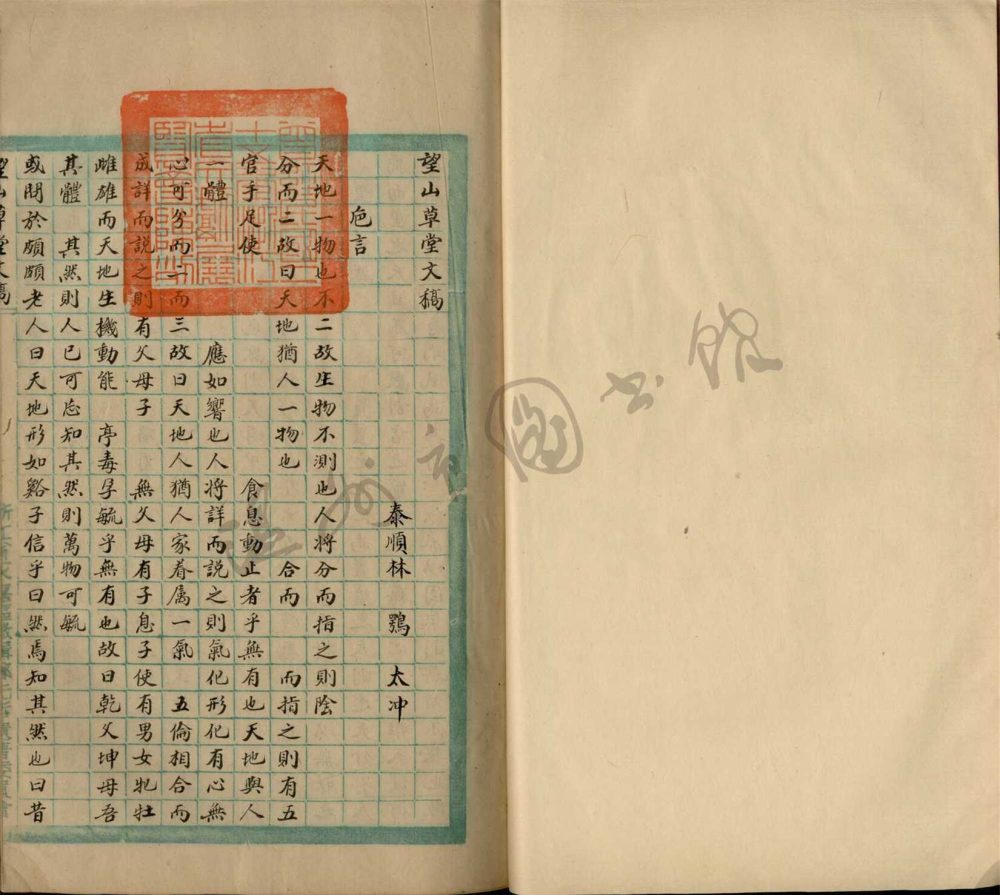 望山草堂文稿
泰順林 鶚 太冲
卮言
天地一物也不二故生物不測也人將分而指之則陰
分而二故曰天地猶人一物也 合而 而指之則有五
官手足使 食息動止者乎無有也天地與人
一體 應如響也人將詳而說之則氣化形化有心無
心可分而二而三故曰天地人猶人家眷属一氣 五倫相合而
成詳而説之則有父母子 無父母有子息子使有男女牝牡
雌雄而天地生機動能 亭毒孕毓乎無有也故曰乾父坤母吾
其體 其然則人已可忘知其然則萬物可毓
或問於頗頗老人曰天地形如谿子信乎曰然焉知其然也曰昔
望山草堂文稿
圖書館